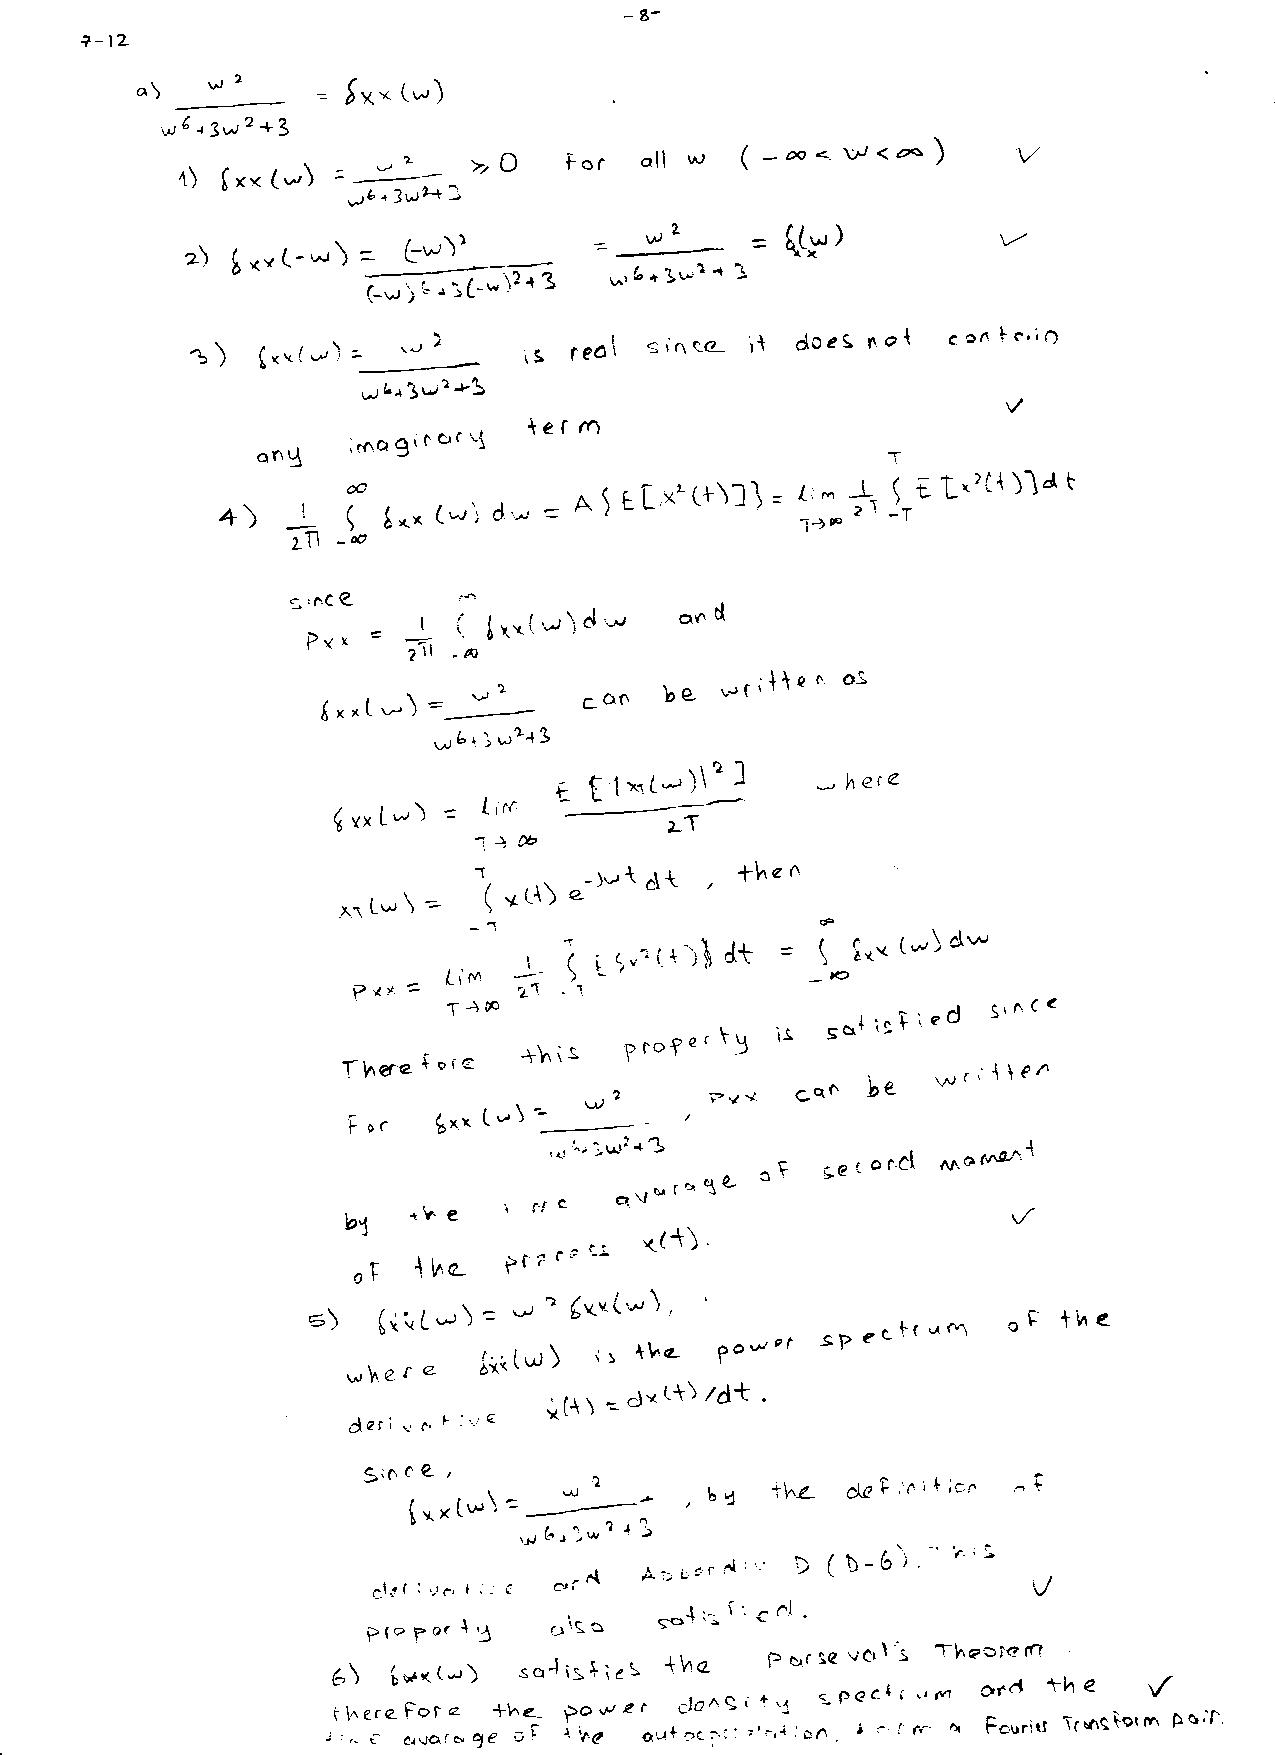 -8-
7-12
a) w² / (w⁶+3w²+3) = δxx(w)
1) δxx(w) = w² / (w⁶+3w²+3) ⩾ 0 for all w (-∞ < w < ∞) ✓
2) δxx(-w) = (-w)² / ((-w)⁶+3(-w)²+3) = w² / (w⁶+3w²+3) = δxx(w) ✓
3) δxx(w) = w² / (w⁶+3w²+3) is real since it does not contain
any imaginary term ✓
4) 1/2π ∫_{-∞}^{∞} δxx(w) dw = A{E[x²(t)]} = lim_{T→∞} 1/2T ∫_{-T}^{T} E[x²(t)]dt
since
Pxx = 1/2π ∫_{-∞}^{∞} δxx(w)dw and
δxx(w) = w² / (w⁶+3w²+3) can be written as
δxx(w) = lim_{T→∞} E[|xT(w)|²] / 2T where
xT(w) = ∫_{-T}^{T} x(t) e^{-jwt} dt , then
Pxx = lim_{T→∞} 1/2T ∫_{-T}^{T} E{x²(t)} dt = ∫_{-∞}^{∞} δxx(w)dw
Therefore this property is satisfied since
For δxx(w) = w² / (w⁶+3w²+3) , Pxx can be written
by the time avarage of second moment
of the process x(t). ✓
5) δẋẋ(w) = w² δxx(w),
where δẋẋ(w) is the power spectrum of the
derivative ẋ(t) = dx(t)/dt.
Since,
δxx(w) = w² / (w⁶+3w²+3) , by the definition of
derivative and Appendix D (D-6). This
property also satisfied. ✓
6) δxx(w) satisfies the Parseval's Theorem
therefore the power density spectrum and the ✓
time avarage of the autocorrelation, form a Fourier Transform pair.